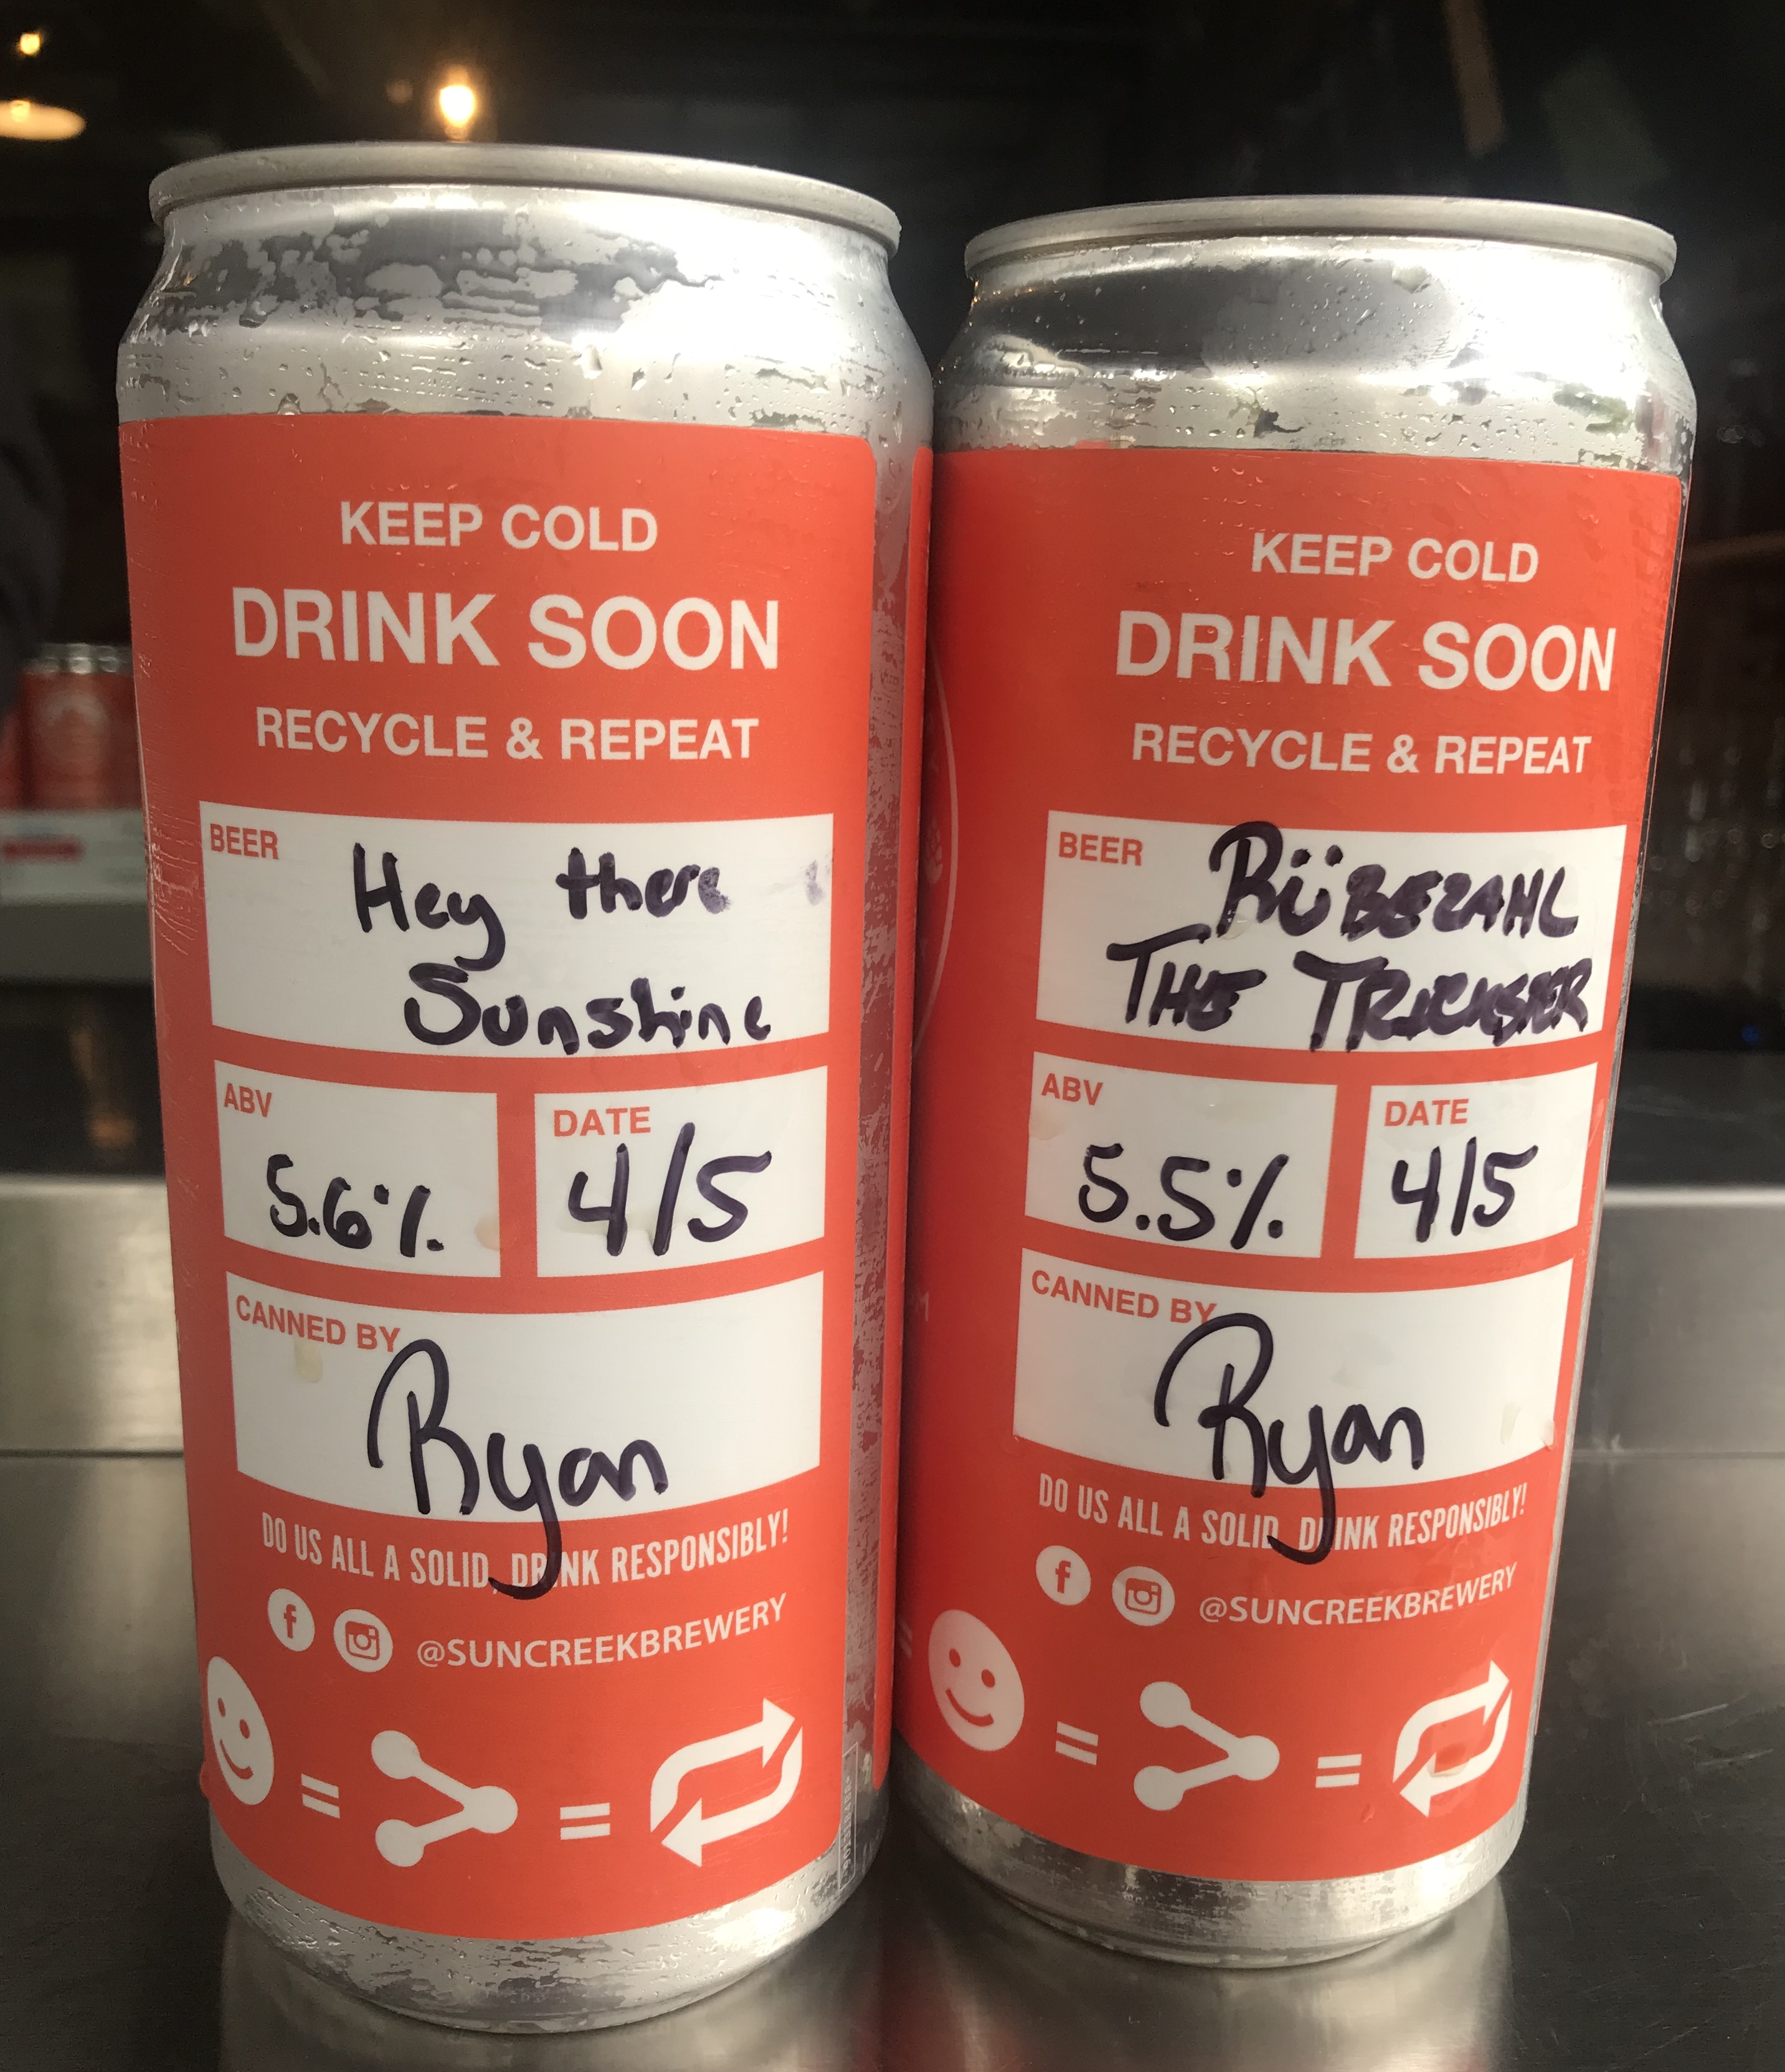 KEEP COLD
DRINK SOON
RECYCLE & REPEAT
BEER
Hey there
Sunshine
ABV
5.6%
DATE
4/5
CANNED BY
Ryan
DO US ALL A SOLID, DRINK RESPONSIBLY!
@SUNCREEKBREWERY
= =
KEEP COLD
DRINK SOON
RECYCLE & REPEAT
BEER
RÜBEZAHL
THE TRICKSTER
ABV
5.5%
DATE
4/5
CANNED BY
Ryan
DO US ALL A SOLID, DRINK RESPONSIBLY!
@SUNCREEKBREWERY
= = =